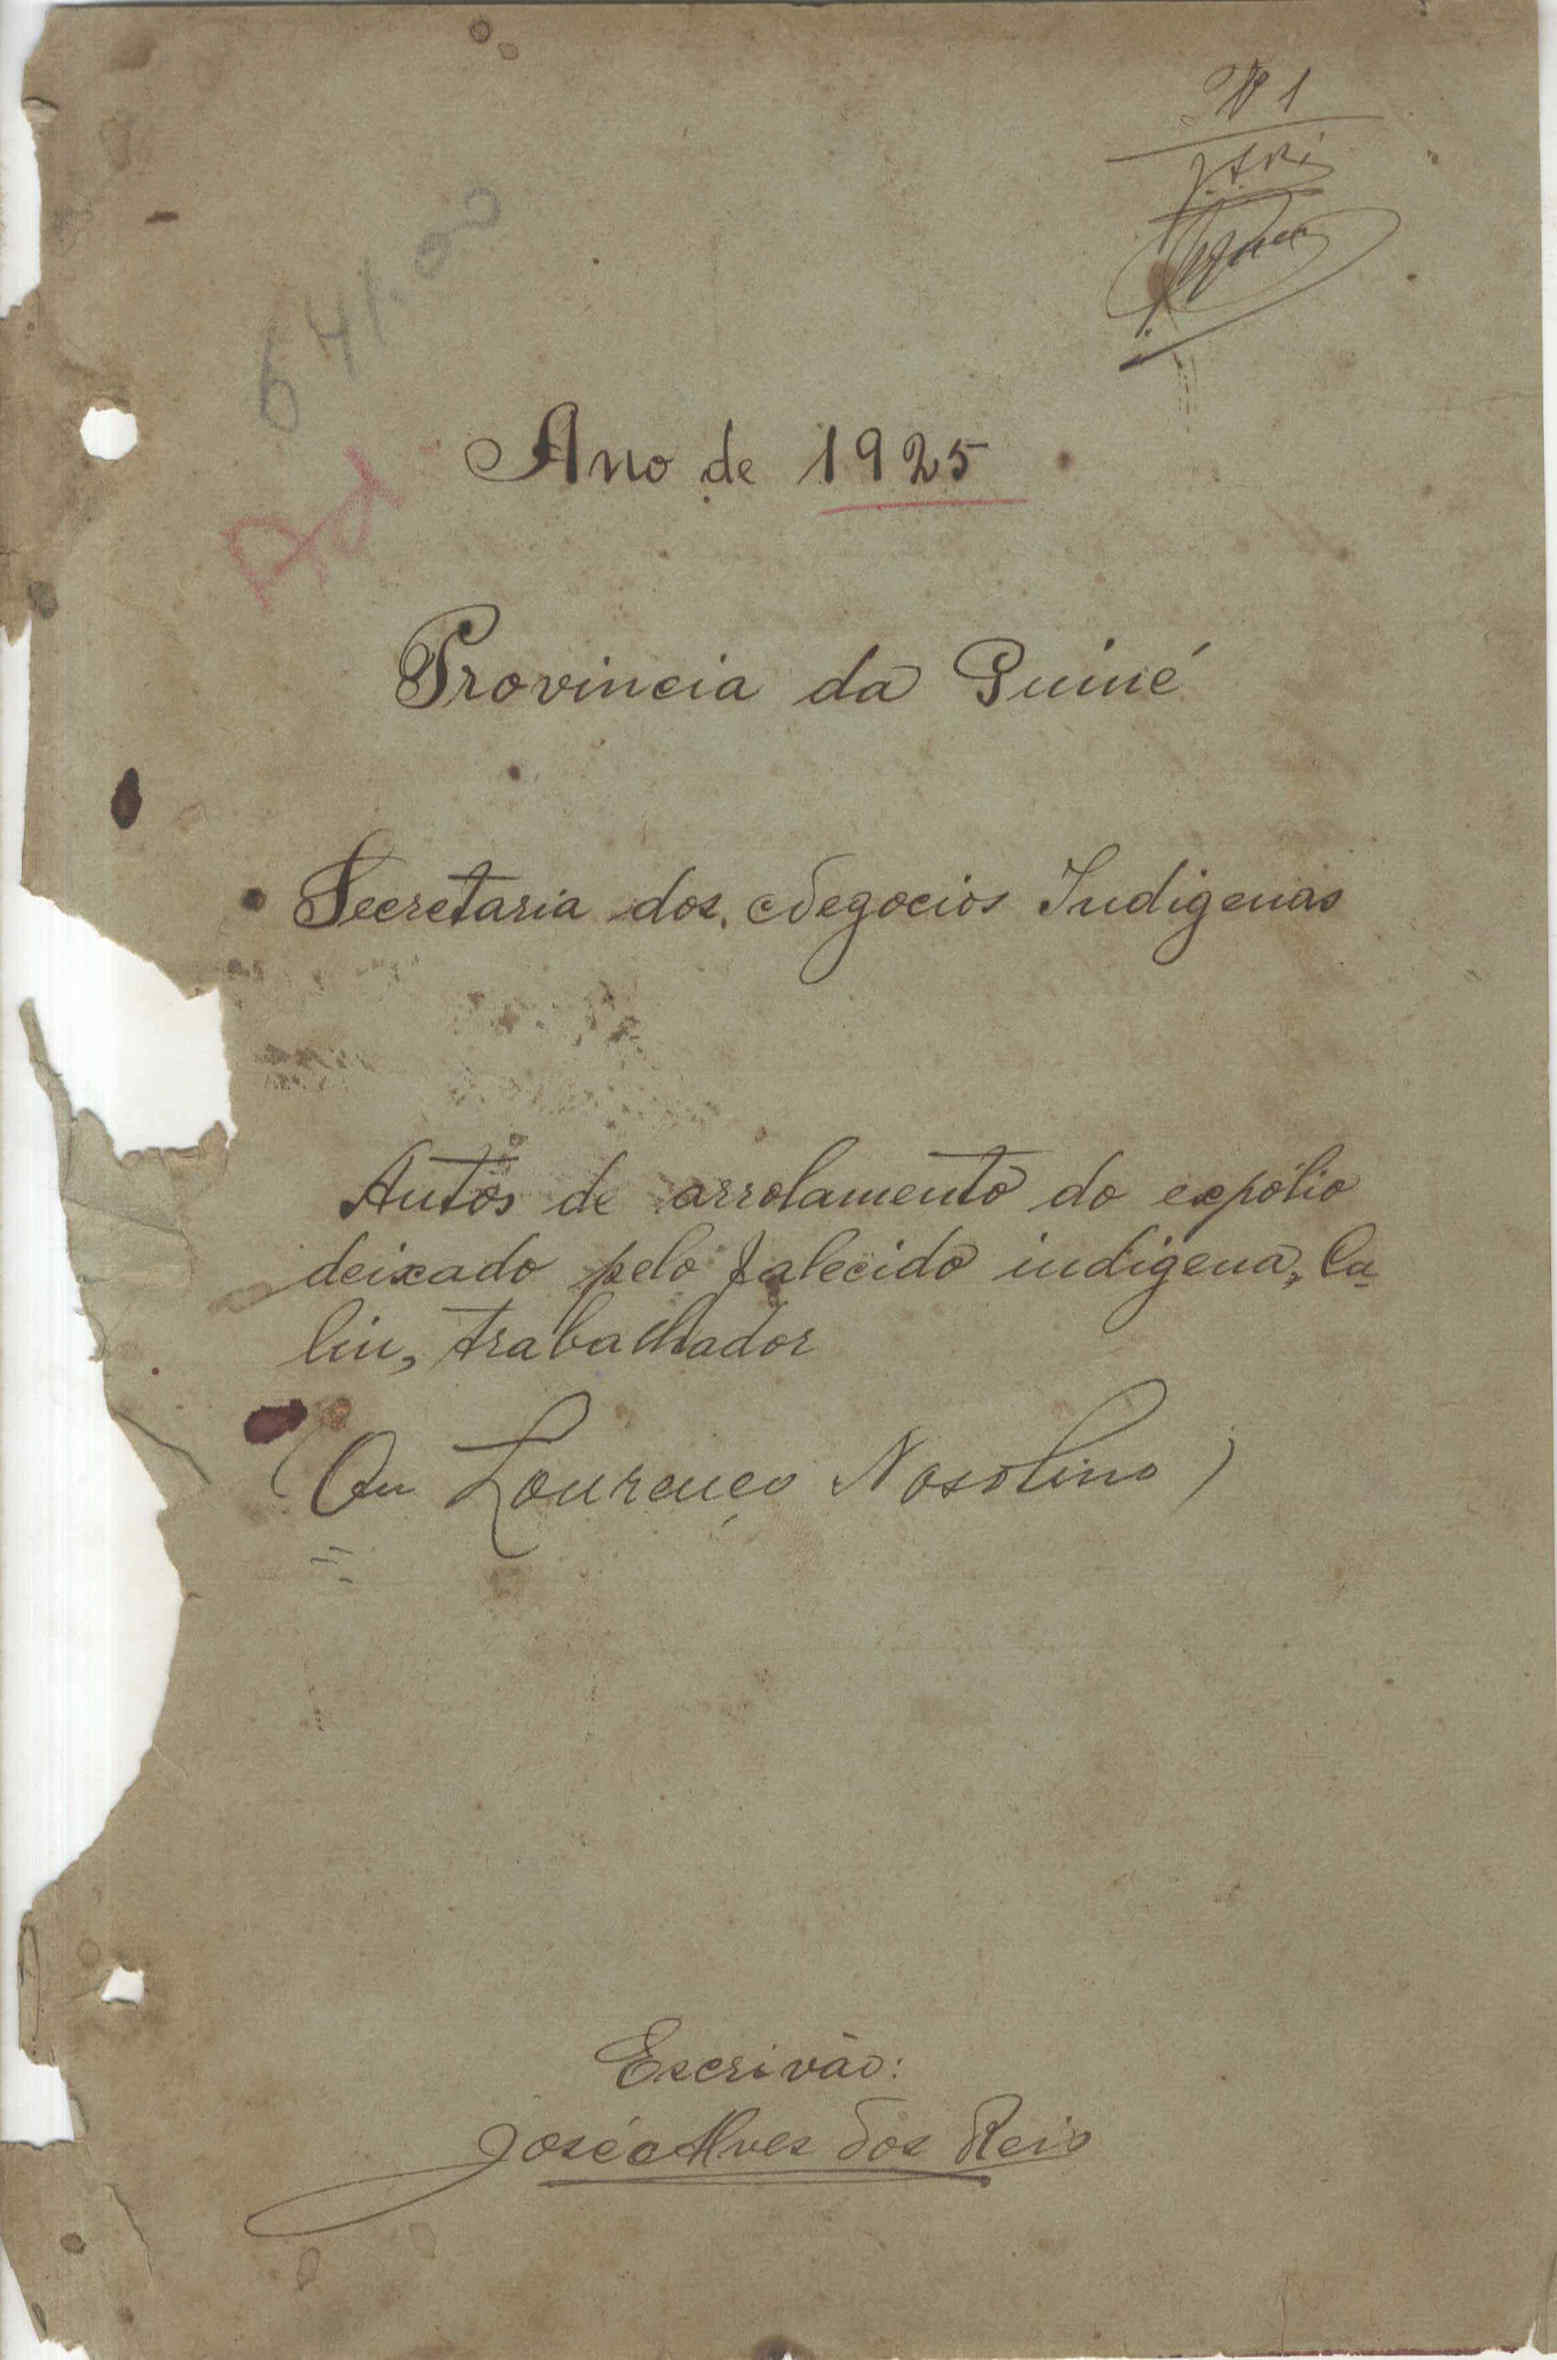 Nº 1
641.00
Ano de 1925
Provincia da Guiné
Secretaria dos Negocios Indigenas
Autos de arrolamento do expólio
deixado pelo falecido indigena, Ca-
liu, trabalhador
(Ou Lourenço Nosolino)
Escrivão:
José Alves dos Reis